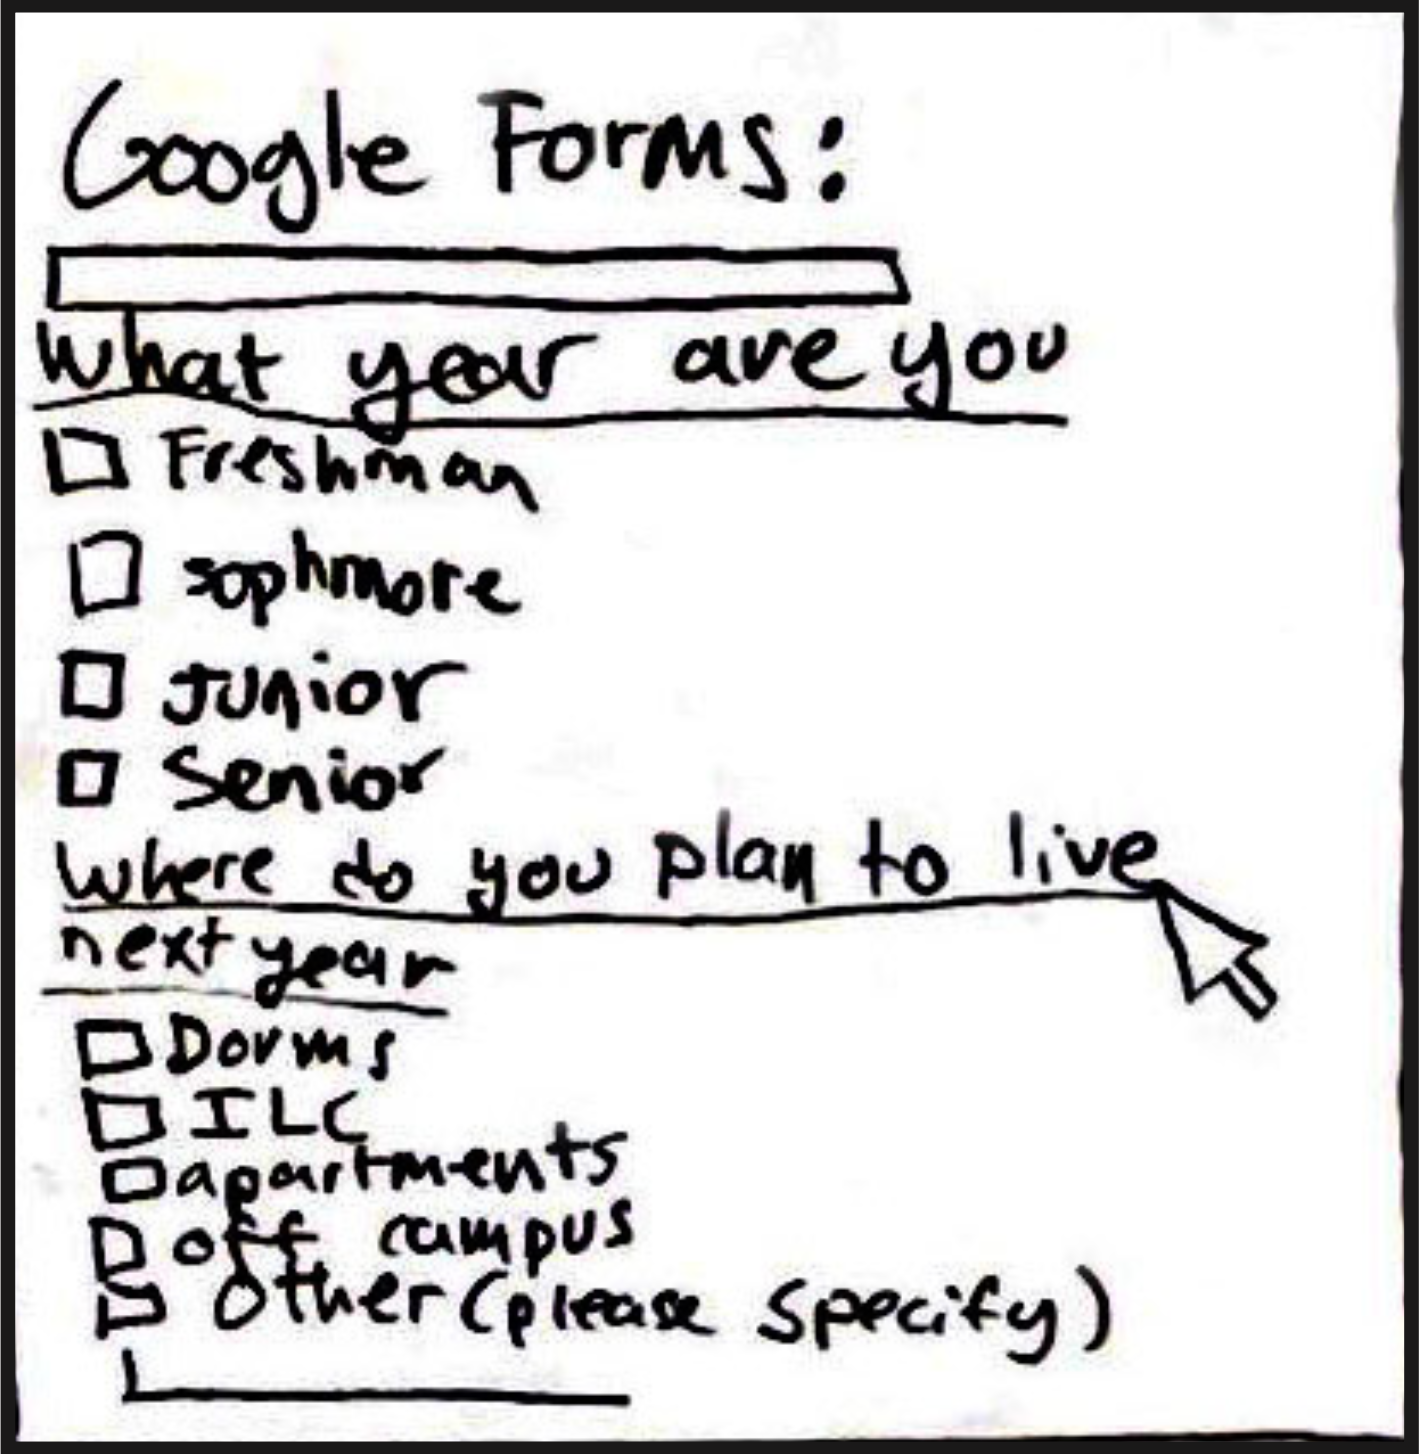 Google Forms:
what year are you
Freshman
sophmore
Junior
Senior
where do you plan to live
next year
Dorms
ILC
apartments
off campus
Other (please specify)